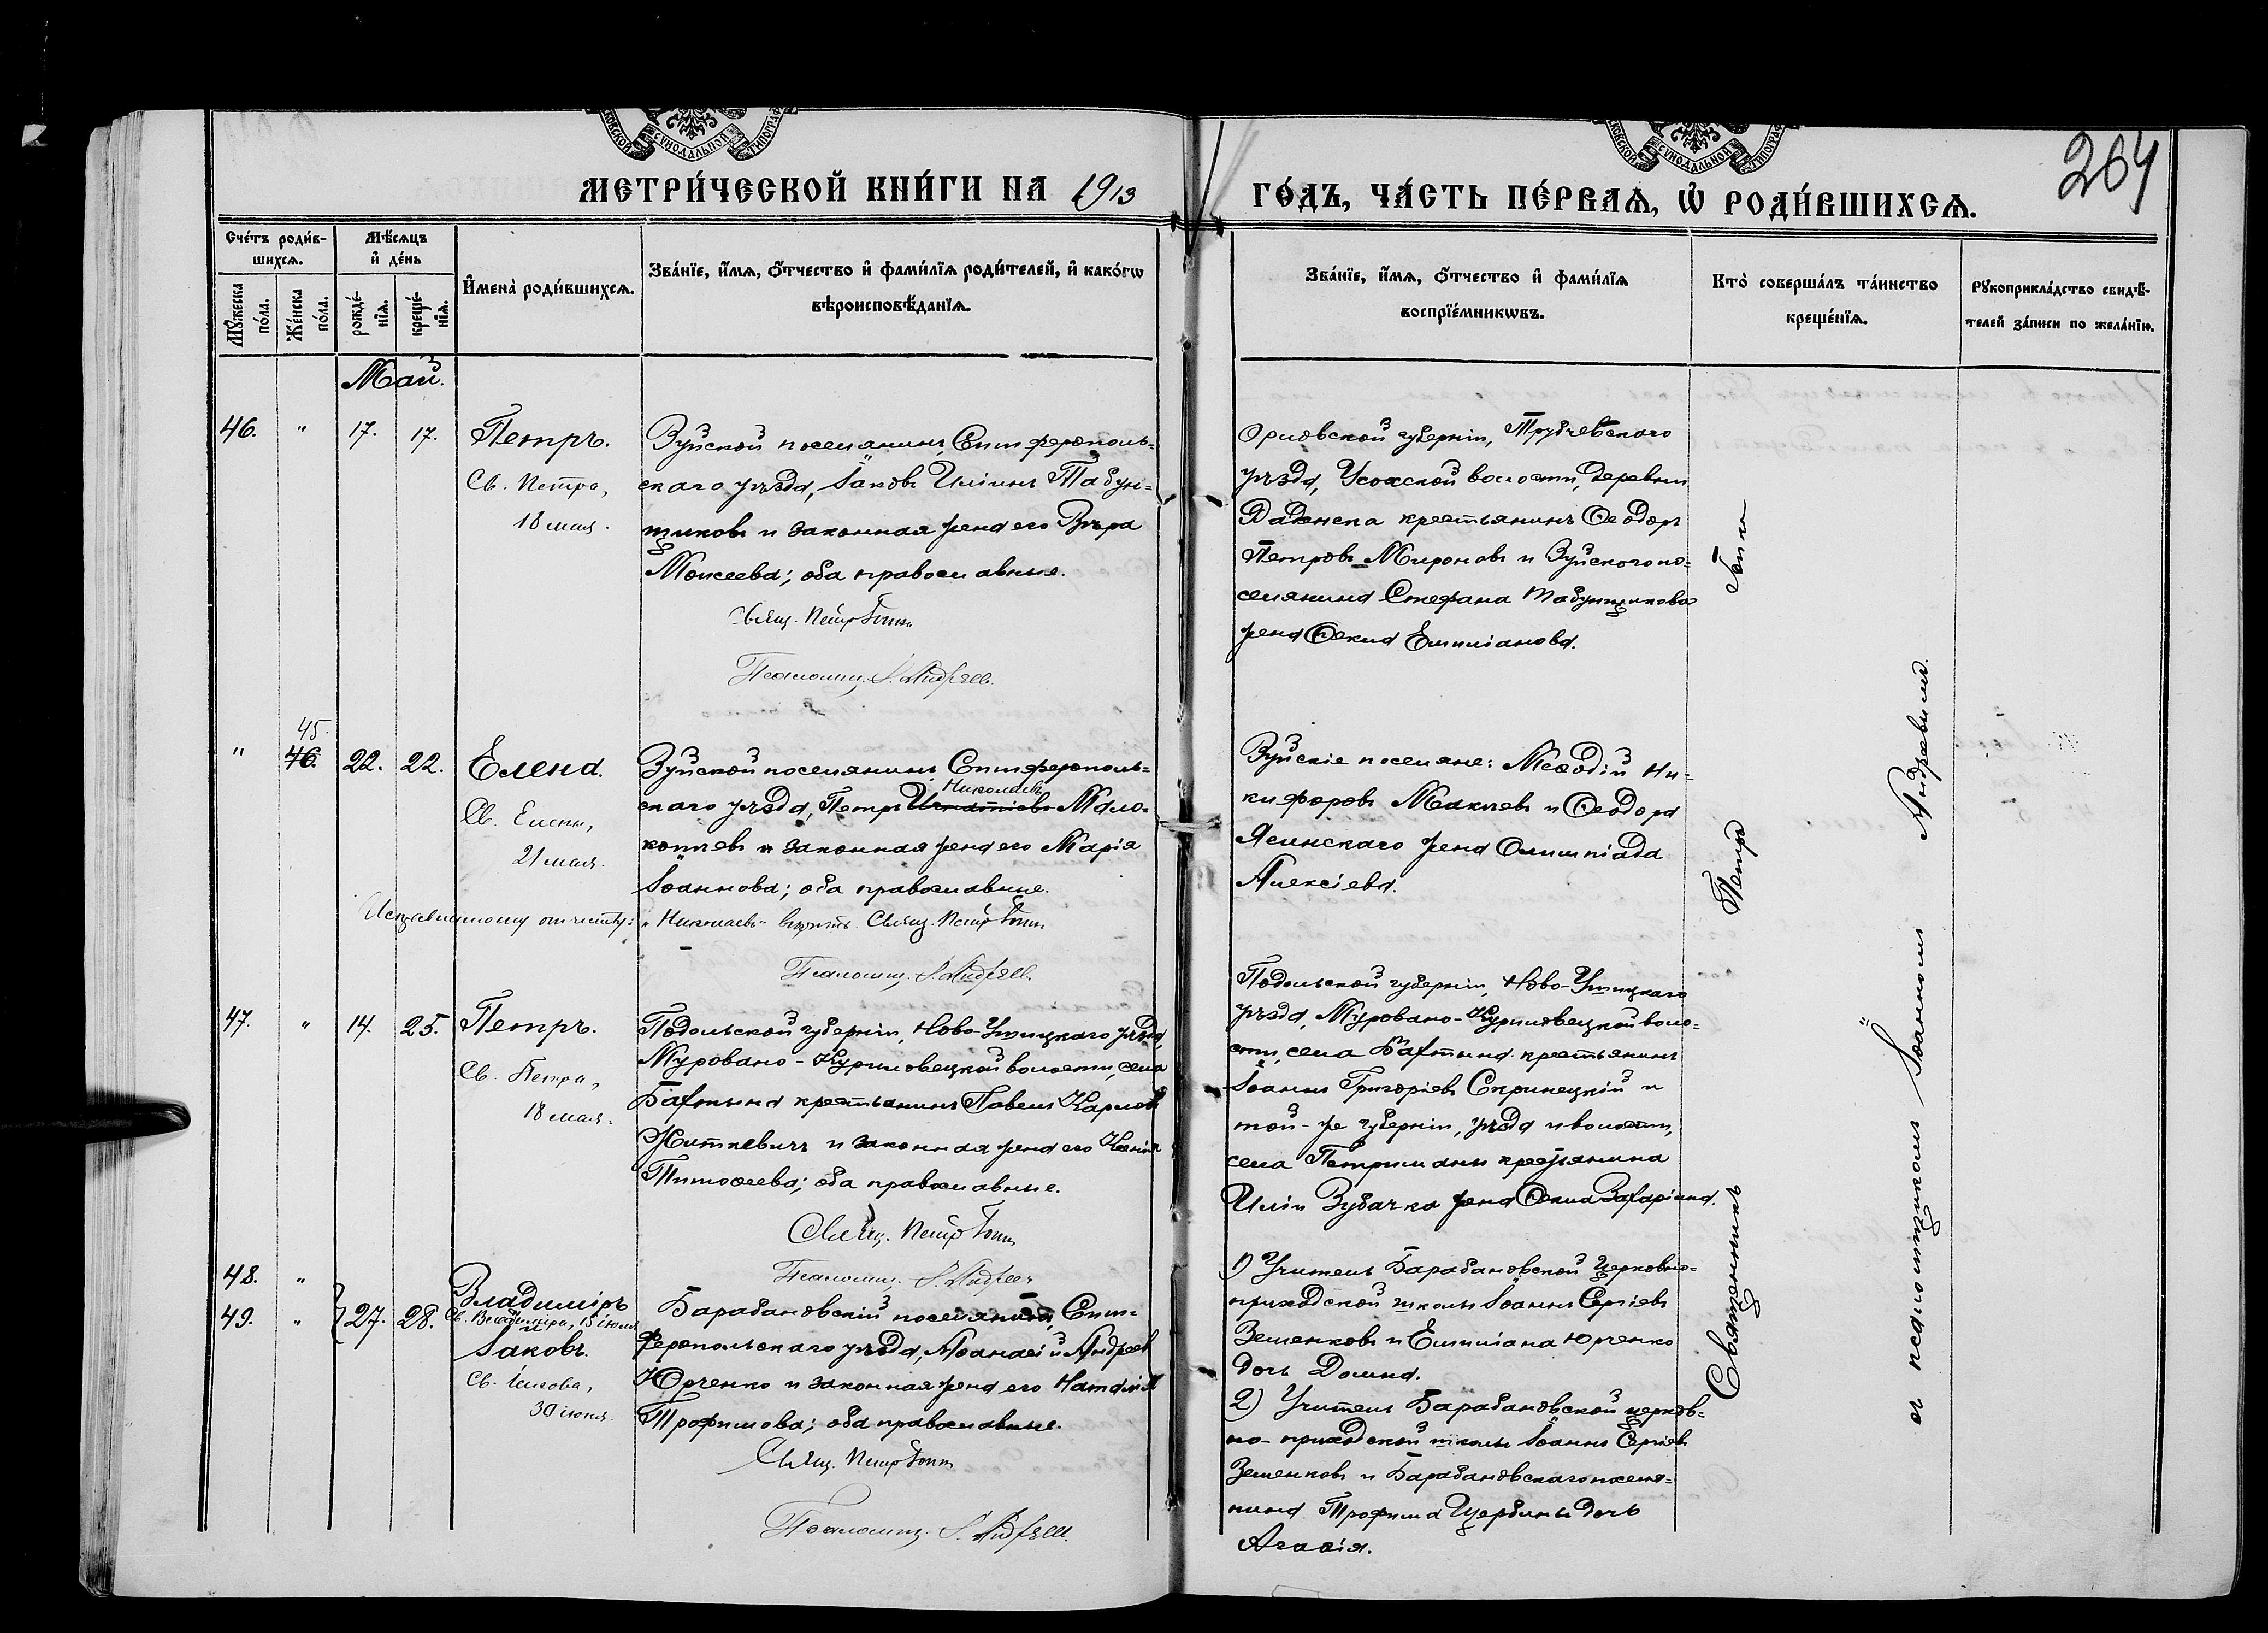 МЕТРИ́ЧЕСКОЙ КНИ́ГИ НА 1913 ГО́ДЪ, ЧА́СТЬ ПЕ́РВАѦ, Ѡ҆ РОДИ́ВШИХСѦ.
264
Сче́тъ роди́в-
шихсѧ.
Мѣ́сѧцъ
и҆ де́нь
Мꙋ́жеска
по́ла.
Же́нска
по́ла.
рожде́-
нїѧ.
креще́-
нїѧ.
И҆мена̀ роди́вшихсѧ.
Зва́нїе, и҆́мѧ, ѻ҆́тчество и҆ фами́лїѧ роди́телей, и҆ како́гѡ
вѣроисповѣ́данїѧ.
Зва́нїе, и҆́мѧ, ѻ҆́тчество и҆ фами́лїѧ
воспрїе́мникѡвъ.
Кто̀ соверша́лъ та́инство
креще́нїѧ.
Рꙋкоприкла́дство свидѣ́-
телей за́писи по жела́нїю.
Май.
46. " 17. 17. Петръ.
Св. Петра,
18 мая.
Зуйской поселянинъ, Симферополь-
скаго уѣзда, Іаковъ Иліинъ Табун-
щиковъ и законная жена его Вѣра
Моисеева; оба православные.
Свящ. Петръ Гопка
Псаломщ. І. Андрѣев.
Орловской губерніи, Трубчевскаго
уѣзда, Усохской волости, деревни
крестьянинъ Ѳеодоръ
Петровъ Мироновъ и Зуйскаго по-
селянина Стефана Табунщикова
жена Ѳекла Емиліанова.
45.
" 46. 22. 22. Елена.
Св. Елены,
21 мая.
Зуйской поселянинъ, Симферополь-
Николаевъ
скаго уѣзда, Петръ Игнатіевъ Мало-
копчевъ и законная жена его Марія
Іоаннова; оба православные.
Исправленному отчеству: "Николаевъ" вѣрить. Свящ. Петръ Гопка
Псаломщ. І. Андрѣев.
Зуйскіе поселяне: Меѳодій Ни-
кифоровъ и Ѳеодора
Ясинскаго жена Олимпіада
Алексіева.
47. " 14. 25. Петръ.
Св. Петра,
18 мая.
Подольской губерніи, Ново-Ушицкаго уѣзда,
Муровано-Куриловецкой волости, села
Бахтына крестьянинъ Павелъ Карповъ
Житкевичъ и законная жена его Ксенія
Тимоѳеева; оба православные.
Свящ. Петръ Гопка
Псаломщ. І. Андрѣев
Подольской губерніи, Ново-Ушицкаго
уѣзда, Муровано-Куриловецкой воло-
сти, села Бахтына крестьянинъ
Іоаннъ Григоріевъ Скринецкій и
той-же губерніи, уѣзда и волости,
села Петриманы крестьянина
Иліи Зубачка жена Ѳекла Захаріина.
48. "
49. " 27. 28. Владиміръ
Св. Владиміра, 15 іюля
и
Іаковъ.
Св. Іакова,
30 іюня.
Барабановскій поселянинъ, Сим-
феропольскаго уѣзда, Аѳанасій Андреевъ
Юрченко и законная жена его Наталія
Трофимова; оба православные.
Свящ. Петръ Гопка
Псаломщ. І. Андрѣев.
1) Учитель Барабановской церковно-
приходской школы Іоаннъ Сергіевъ
Земенковъ и Емиліана Юрченко
дочь Домна.
2) Учитель Барабановской церков-
но-приходской школы Іоаннъ Сергіевъ
Земенковъ и Барабановскаго поселя-
нина Трофима Щербины дочь
Агаѳія.
Священникъ Петръ Гопка
съ псаломщикомъ Іоанномъ Андреевымъ.